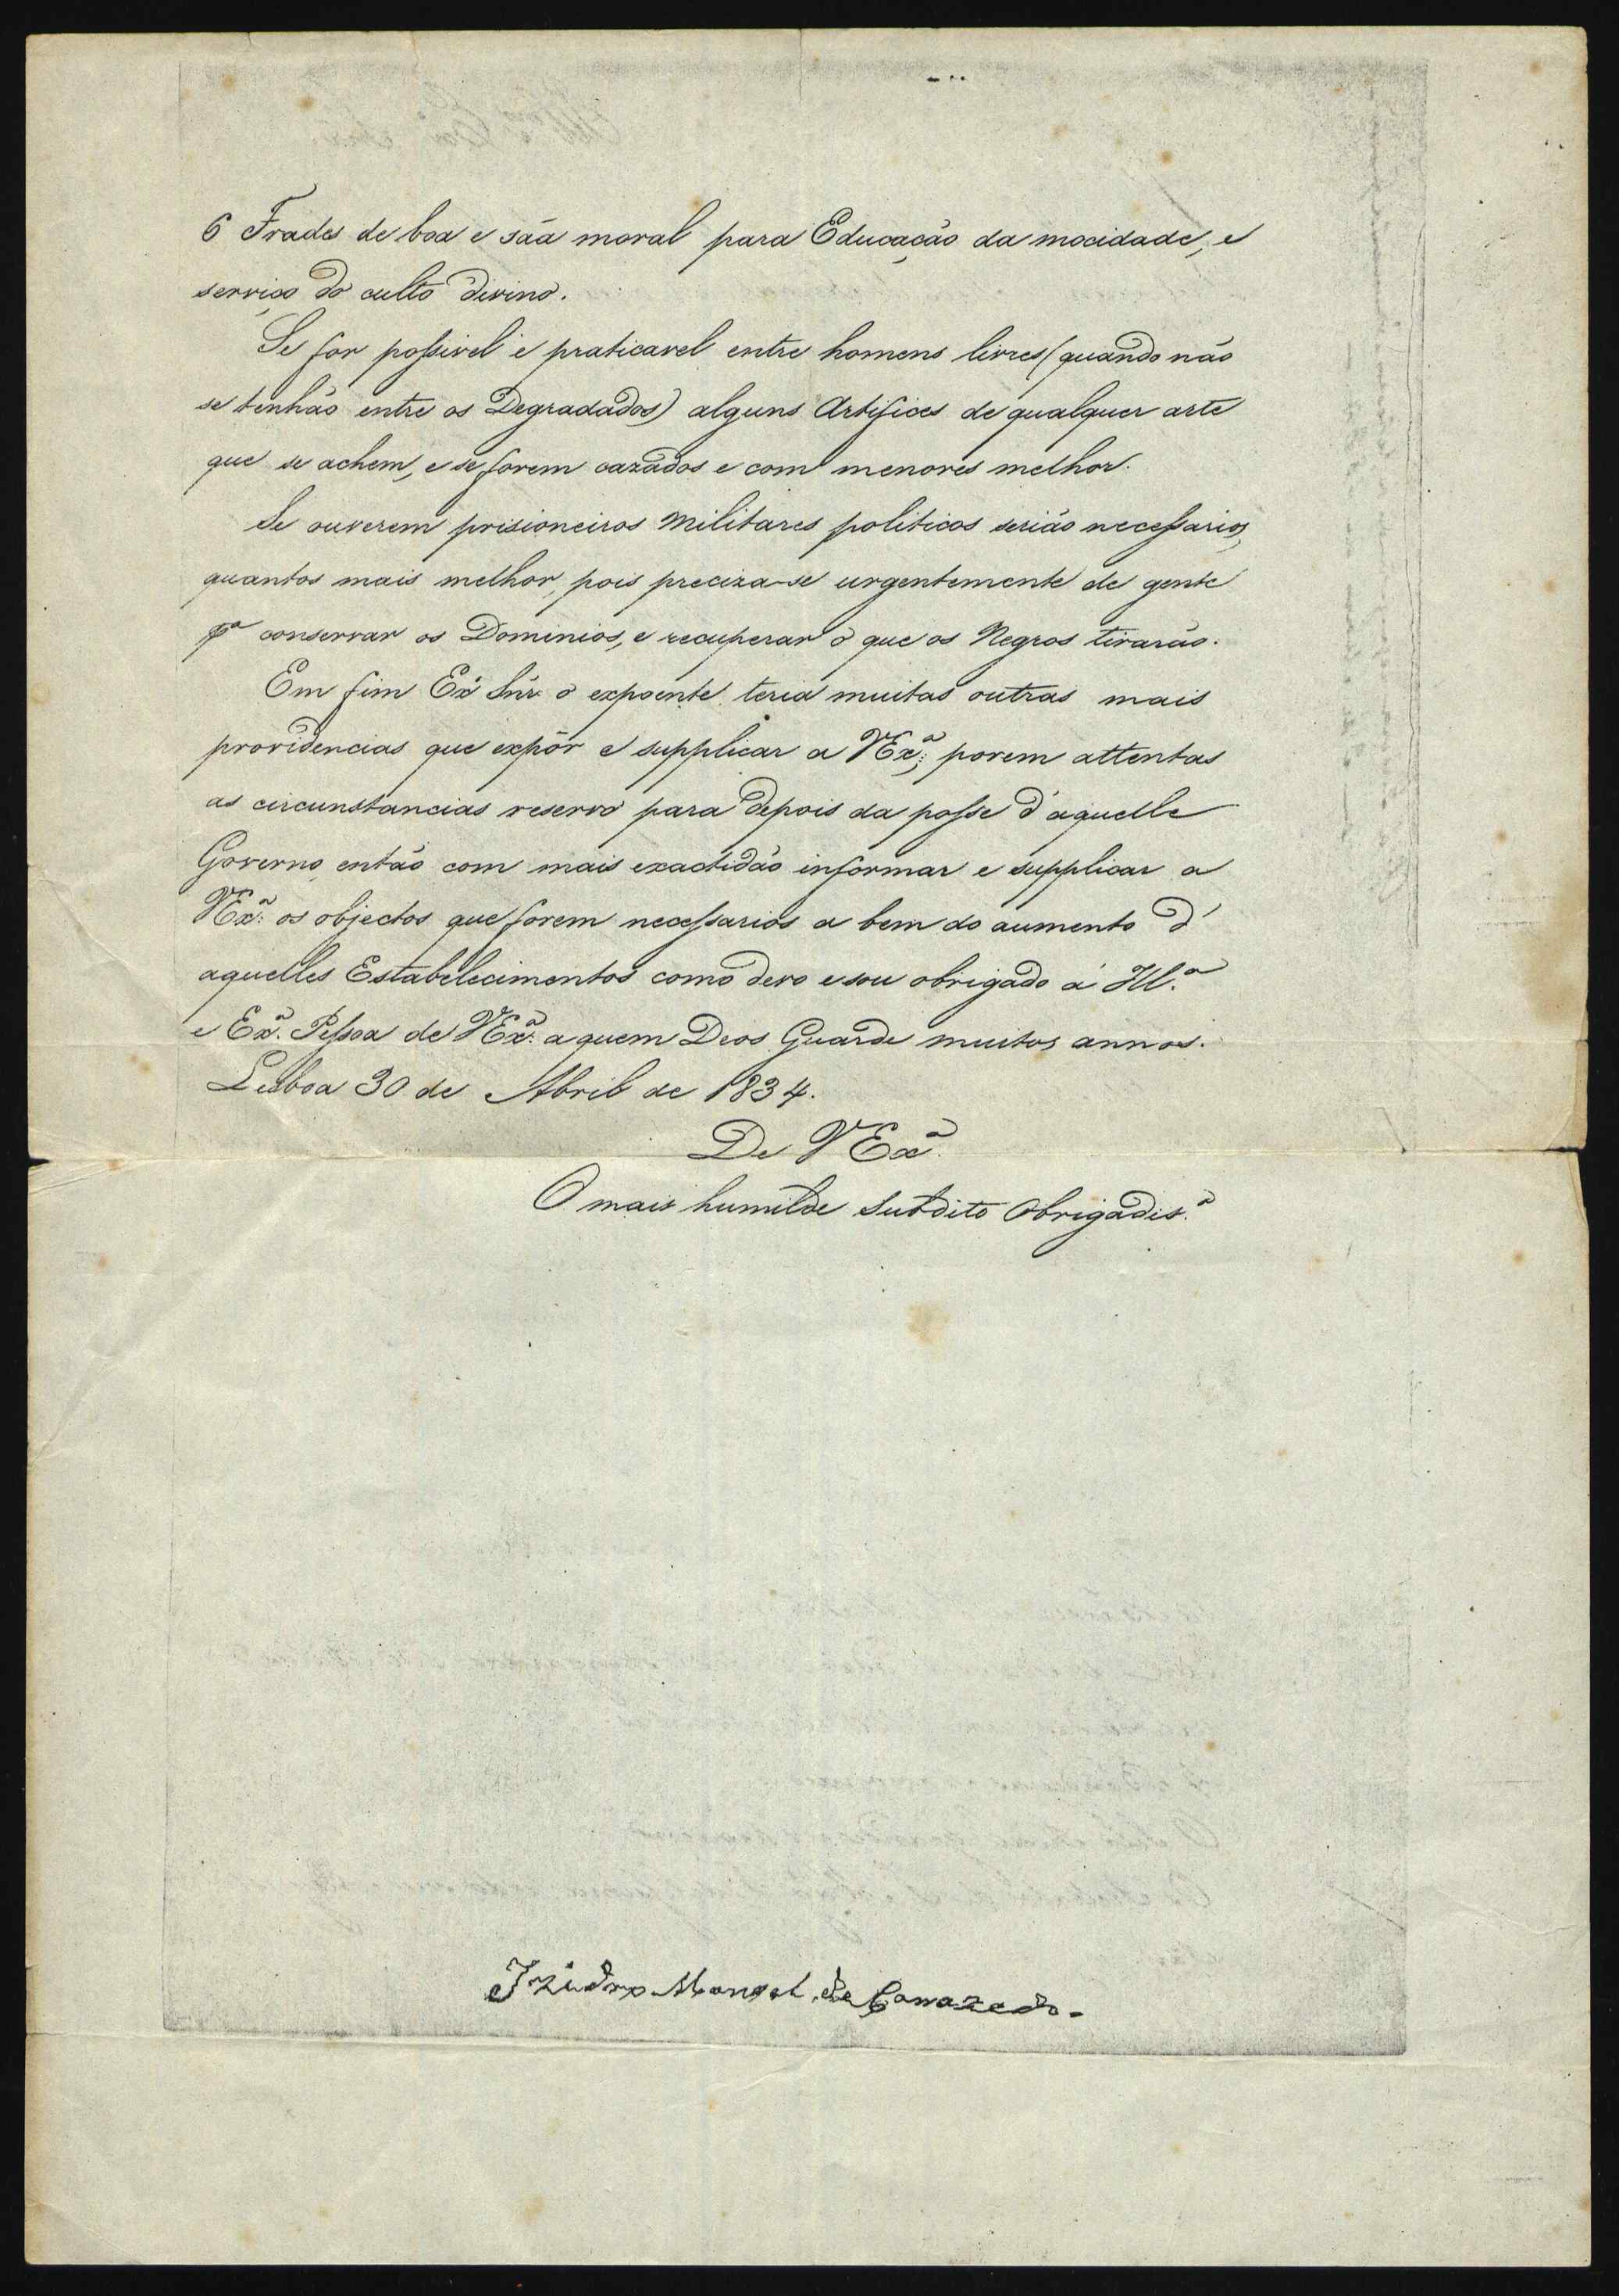 6 Frades de boa e sãa moral para Educação da mocidade, e
serviço do culto divino.
Se for possivel e praticavel entre homens livres (quando não
se tenhão entre os Degradados) alguns Artifices de qualquer arte
que se achem, e se forem cazados e com menores melhor.
Se ouverem prisioneiros Militares politicos serião necessarios,
quantos mais melhor, pois preciza-se urgentemente de gente
pª conservar os Dominios, e recuperar o que os Negros tirarão.
Em fim Exº Snr o expoente teria muitas outras mais
providencias que expôr e supplicar a VExª; porem attentas
as circunstancias reservo para depois da posse d'aquelle
Governo então com mais exactidão informar e supplicar a
VExª: os objectos que forem necessarios a bem do aumento d'
aquelles Estabelecimentos como devo e sou obrigado á Illª.
e Exª. Pessoa de VExª: a quem Deos Guarde muitos annos.
Lisboa 30 de Abril de 1834.
De VExª.
O mais humilde Subdito Obrigadisº.
Izidro Manoel de Carrazedo.